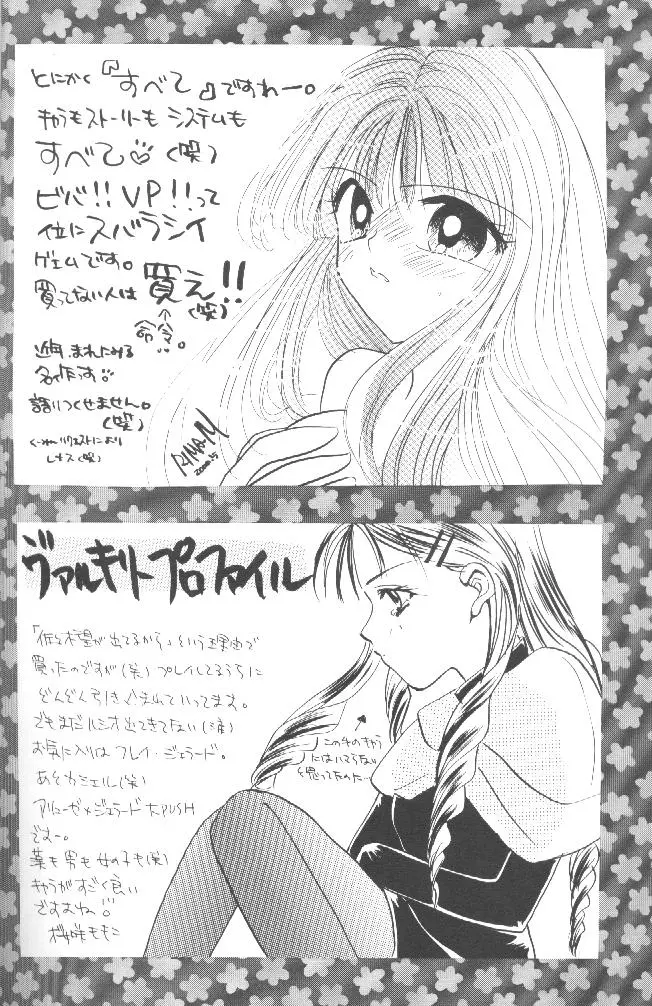 とにかく『すべて』ですわー。
キャラもストーリーもシステムも
すべて♡(笑)
ビバ!!VP!!って
位にスバラシイ
ゲェムです。
買ってない人は買え!!(笑)
↑
命令!!。
近年まれにみる
名作っす
語りつくせません。
(笑)
くーねぃリクエストにより
レナス(笑)
RINA.M
2000.5
ヴァルキリープロファイル
「佐々木望が出てるから」という理由で
買ったのですが(笑)プレイしてるうちに
ぞんぞん引きこまれていってます。
でもまだルシオ出てきてない(涙)
お気に入りはフレイ・ジェラード。
あとカシェル(笑)
アリューゼ×ジェラード大PUSH
ですー。
葉も男も女の子も(笑)
キャラがすごく良い
ですよね
桜咲ももこ
この手のキャラ
にはいてらない
と思ってたのに…